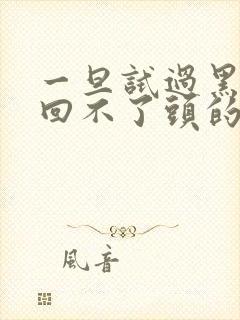 一旦試過黑
回不了頭的
風音